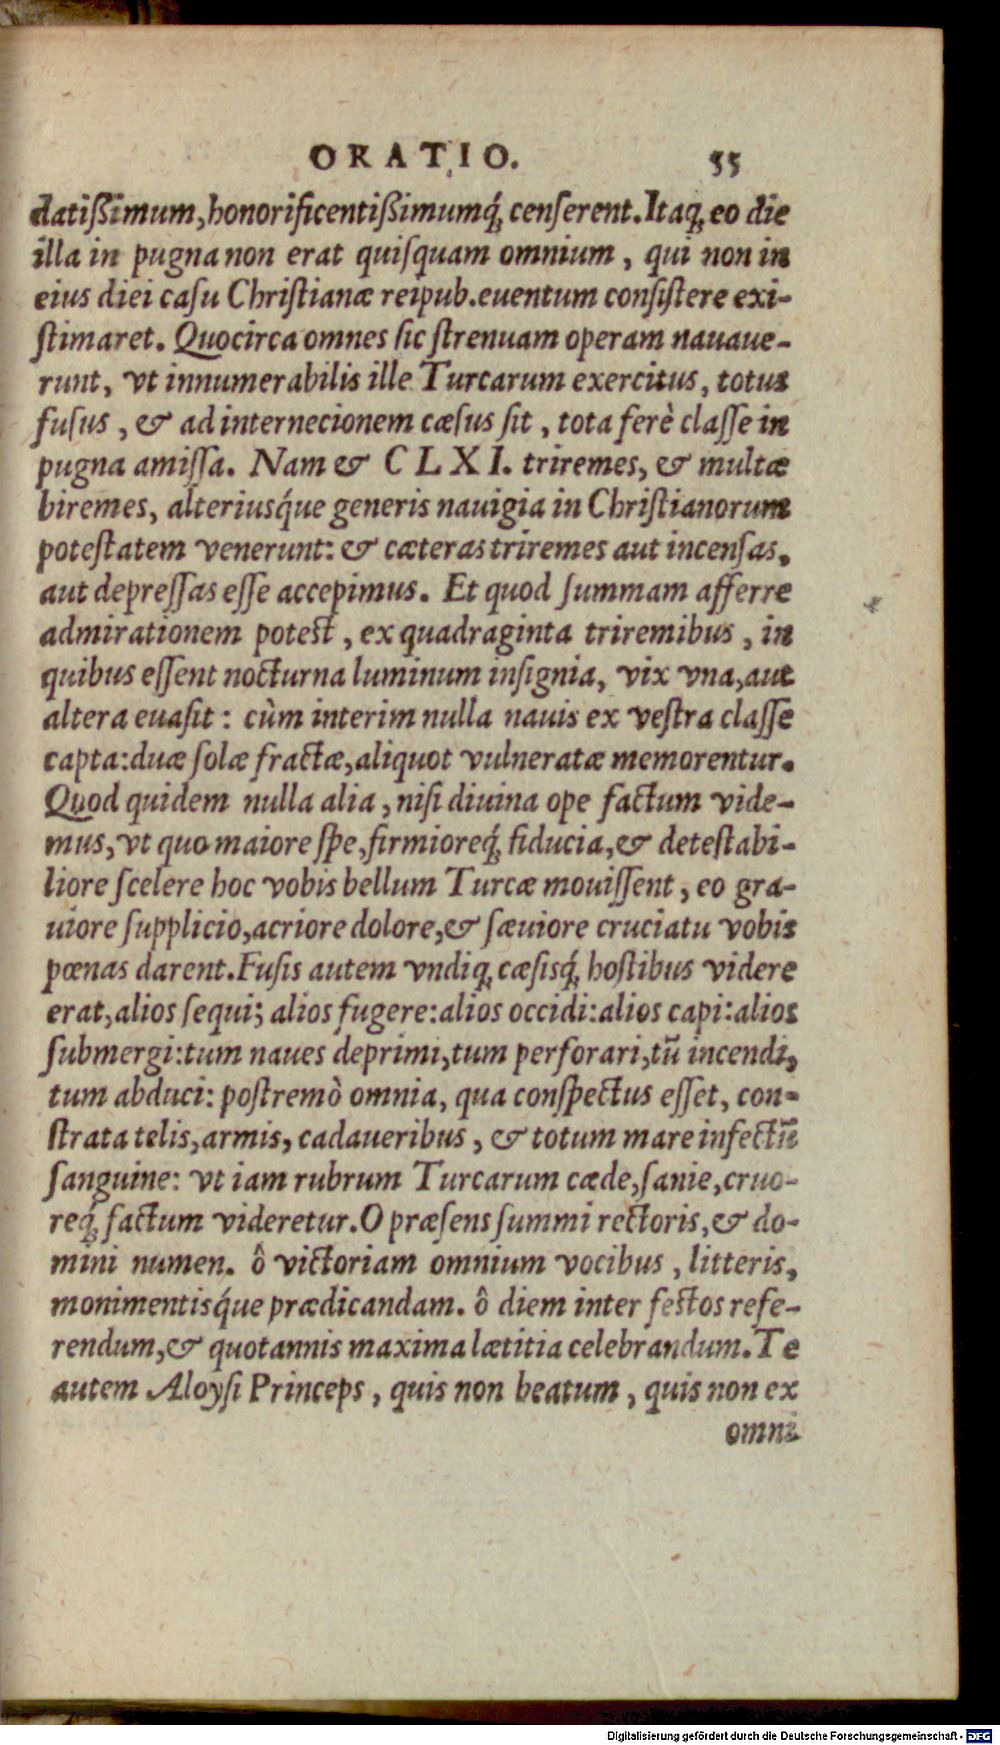 ORATIO. 55
datißimum, honorificentißimumq́; censerent. Itaq; eo die
illa in pugna non erat quiſquam omnium, qui non in
eius diei caſu Chriſtianæ reipub. euentum conſiſtere exi-
ſtimaret. Quocirca omnes ſic ſtrenuam operam nauaue-
runt, vt innumerabilis ille Turcarum exercitus, totus
fuſus, & ad internecionem cæſus ſit, tota ferè claſſe in
pugna amiſſa. Nam & CLXI. triremes, & multæ
biremes, alteriusq́ue generis nauigia in Chriſtianorum
poteſtatem venerunt: & cæteras triremes aut incenſas,
aut depreſſas eſſe accepimus. Et quod ſummam afferre
admirationem poteſt, ex quadraginta triremibus, in
quibus eſſent nocturna luminum inſignia, vix vna, aut
altera euaſit: cùm interim nulla nauis ex veſtra claſſe
capta: duæ ſolæ fractæ, aliquot vulneratæ memorentur.
Quod quidem nulla alia, niſi diuina ope factum vide-
mus, vt quo maiore ſpe, firmioreq́; fiducia, & deteſtabi-
liore ſcelere hoc vobis bellum Turcæ mouiſſent, eo gra-
uiore ſupplicio, acriore dolore, & ſæuiore cruciatu vobis
pœnas darent. Fuſis autem vndiq; cæſisq́; hoſtibus videre
erat, alios ſequi; alios fugere: alios occidi: alios capi: alios
ſubmergi: tum naues deprimi, tum perforari, tū incendi,
tum abduci: poſtremò omnia, qua conſpectus eſſet, con-
ſtrata telis, armis, cadaueribus, & totum mare infectū
ſanguine: vt iam rubrum Turcarum cæde, ſanie, cruo-
req́; factum videretur. O præſens ſummi rectoris, & do-
mini numen. ô victoriam omnium vocibus, litteris,
monimentisq́ue prædicandam. ô diem inter feſtos refe-
rendum, & quotannis maxima lætitia celebrandum. Te
autem Aloyſi Princeps, quis non beatum, quis non ex
omni
Digitalisierung gefördert durch die Deutsche Forschungsgemeinschaft - DFG